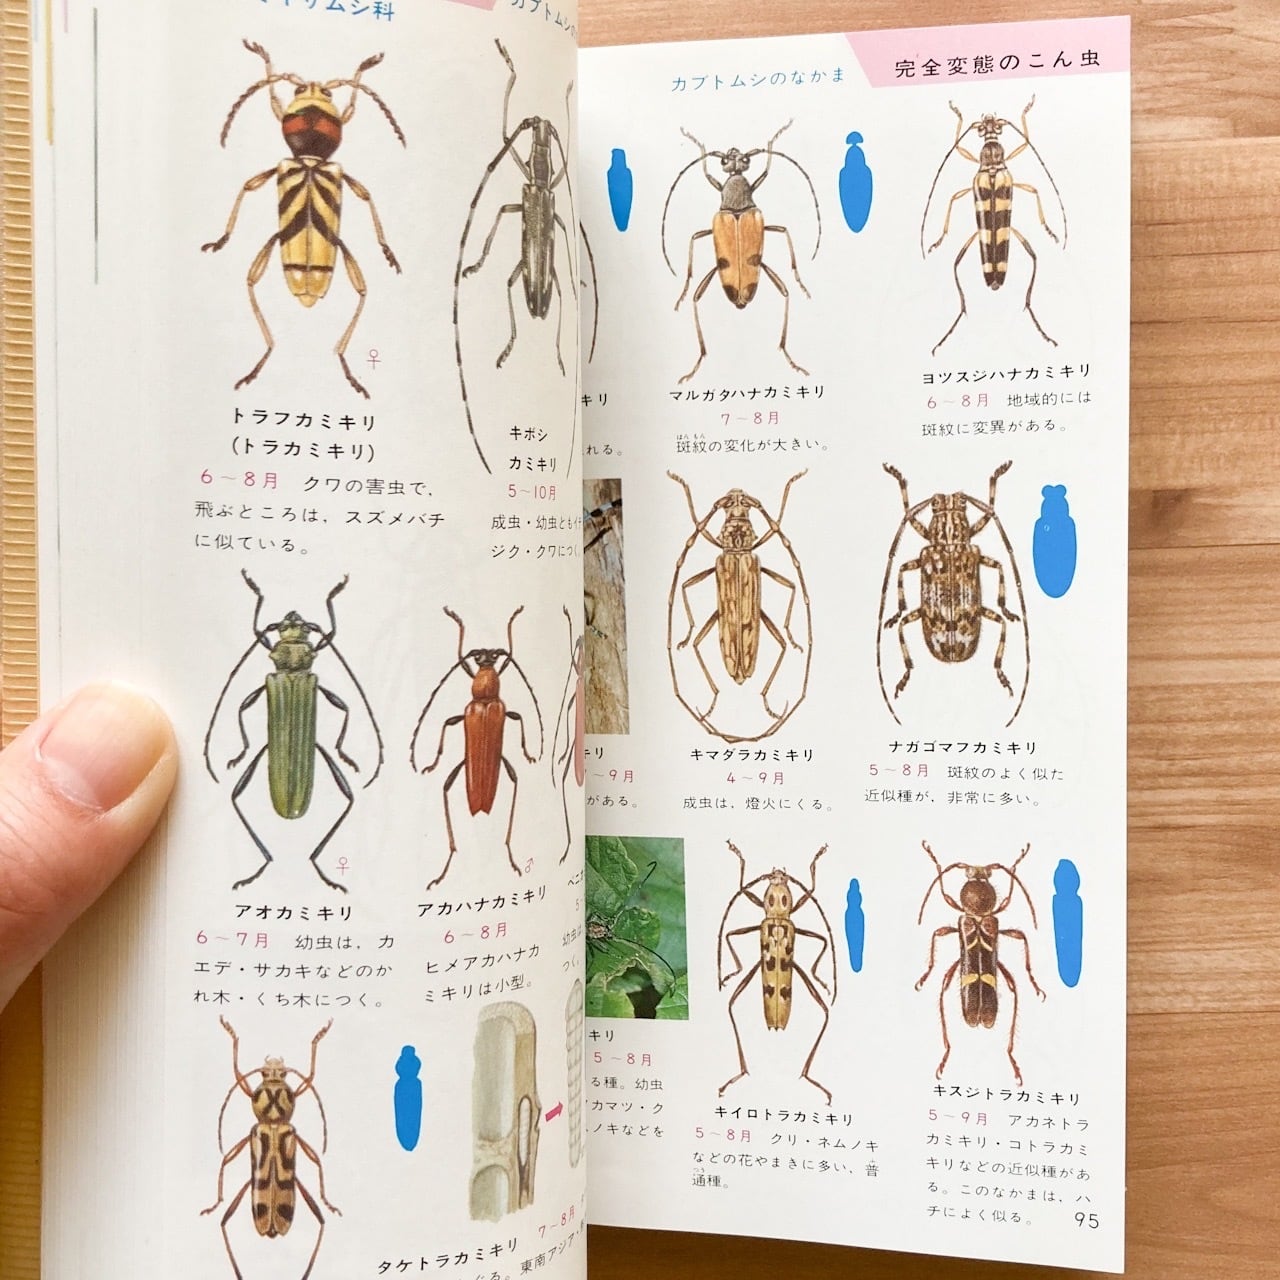 ミキリムシ科
カブトムシの
♀
トラフカミキリ
(トラカミキリ)
6～8月　クワの害虫で，
飛ぶところは，スズメバチ
に似ている。
キボシ
カミキリ
5～10月
成虫・幼虫ともイチ
ジク・クワにつく
♀
アオカミキリ
6～7月　幼虫は，カ
エデ・サカキなどのか
れ木・くち木につく。
♂
アカハナカミキリ
6～8月
ヒメアカハナカ
ミキリは小型。
ベニ
5～
幼虫は
つく。
タケトラカミキリ
7～8月
ぐる。東南アジア・
カブトムシのなかま
完全変態のこん虫
キリ
れる。
マルガタハナカミキリ
7～8月
はん もん
斑紋の変化が大きい。
ヨツスジハナカミキリ
6～8月　地域的には
斑紋に変異がある。
キリ
～9月
がある。
キマダラカミキリ
4～9月
成虫は，燈火にくる。
ナガゴマフカミキリ
5～8月　斑紋のよく似た
近似種が，非常に多い。
キリ
5～8月
る種。幼虫
アカマツ・ク
ノキなどを
キイロトラカミキリ
5～8月　クリ・ネムノキ
などの花やまきに多い，普
通種。
キスジトラカミキリ
5～9月　アカネトラ
カミキリ・コトラカミ
キリなどの近似種があ
る。このなかまは，ハ
チによく似る。
95